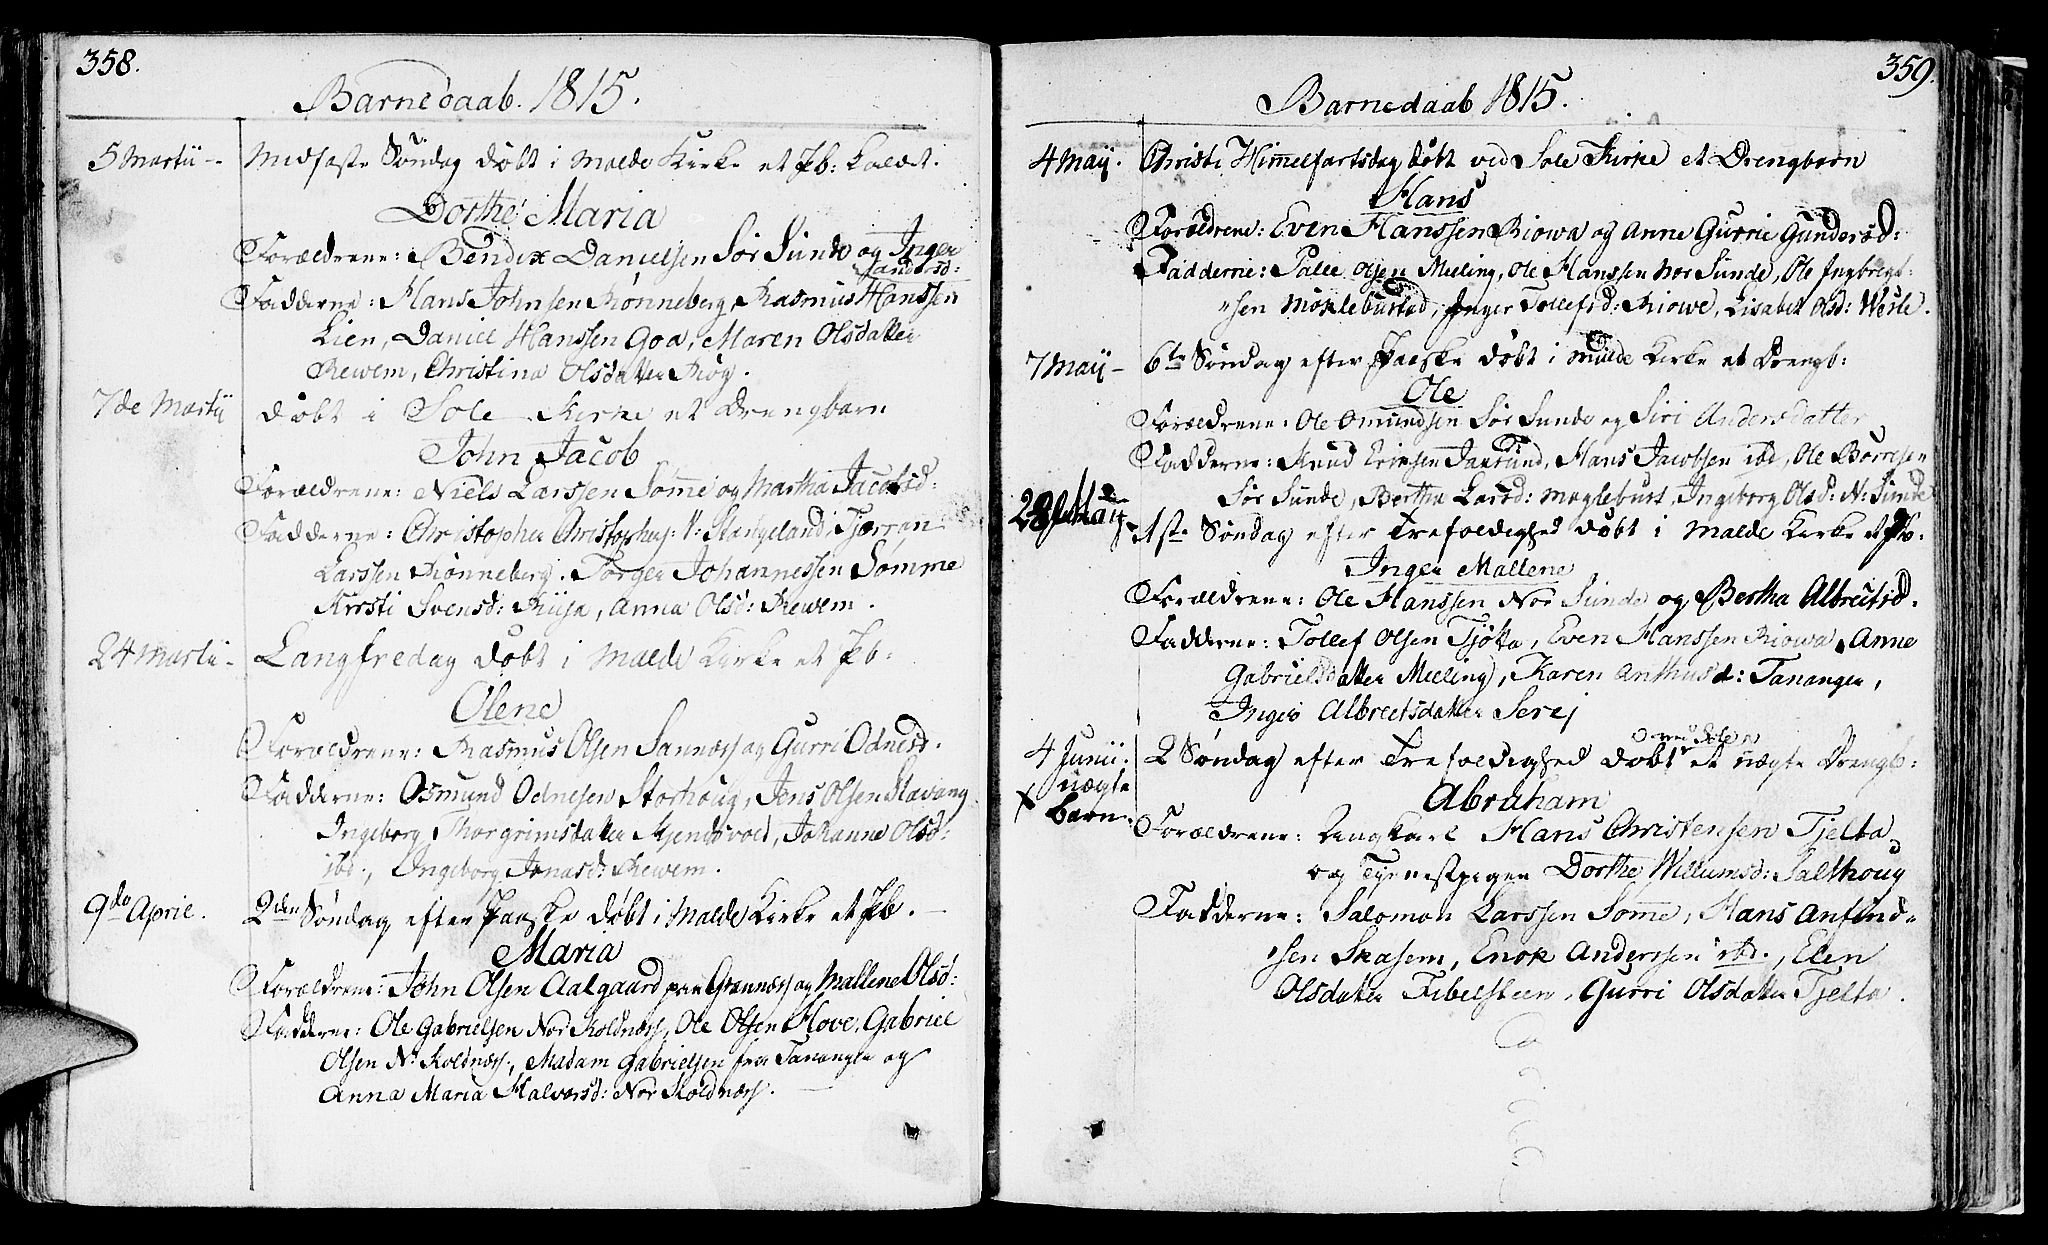 358.
Barnedaab. 1815.
5 Martii - Midfaste Søndag døbt i Malde Kirke et Pb: kaldet.
Dorthe Maria
Forældrene: Bendix Danielsen Sør Sunde og Inger
Sandersd:
Fadderne: Hans Johnsen Rønneberg, Rasmus Hanssen
Lien, Daniel Hanssen Goa, Maren Olsdatter
Rewem, Christina Olsdatter Røg.
7de Martii døbt i Sole Kirke et Drengbarn
John Jacob
Forældrene: Niels Larssen Somme og Martha Jacobsd:
Fadderne: Christopher Christophers: N: Stangeland, Tjerran
Larssen Rønneberg. Torger Johannessen Sømme
Kirsti Svensd: Risa, Anna Olsd: Rewem.
24 Martii - Langfredag døbt i Malde Kirke et Pb:
Olene
Forældrene: Rasmus Olsen Sannæss og Gurri Odnesd.
Fadderne: Osmund Odnesen Storhoug, Jens Olsen Stavang.
Ingeborg Thorgrimsdatter Kjendsvold, Johanne Olsd:
ibd., Ingeborg Jonasd: Rewem.
9de April. 2den Søndag efter Paaske døbt i Malde Kirke et Pb. -
Maria
Forældrene: John Olsen Aalgaard paa Grannæss og Mallene Olsd:
Fadderne: Ole Gabrielsen Nor Koldnæss, Ole Olsen Hove, Gabriel
Olsen N: Koldnæss, Madam Gabrielsen fra Tananger og
Anna Maria Halvorsd: Nor Koldnæss.
359.
Barnedaab 1815.
4 Maij. Christi Himmelfartsdag døbt ved Sole Kirke et Drengbarn
Hans
Forældrene: Even Hanssen Riowa og Anne Gurrie Gundersd:
Fadderne: Palle Olsen Meeling, Ole Hanssen Nor Sunde, Ole Ingbregt-
sen Møklebustad, Inger Tollefsd: Riowe, Lisabet Olsd: Weste.
7 Maij - 6te Søndag efter Paaske døbt i Malde Kirke et Drengb:
Ole
Forældrene: Ole Omundsen Sør Sunde og Siri Andersdatter
Fadderne: Knud Eriksen Jaasund, Hans Jacobsen ibd, Ole Børresen
Sør Sunde, Bertha Larsd: Magleburst, Ingeborg Olsd: N: Sunde
28 Maij - 1ste Søndag efter Trefoldighed døbt i Malde Kirke et Pb.
Inger Mallene
Forældrene: Ole Hanssen Nor Sunde og Bertha Albretsd.
Fadderne: Tollef Olsen Tjøtta, Even Hanssen Riowa, Anne
Gabrielsdatter Meeling, Karen Anthusd: Tananger,
Inger Albreetsdatter Serej
4 Junii. 2 Søndag efter Trefoldighed døbt ved Sole et uægte Drengb:
uægte
x Barn.
Abraham
Forældrene: Ungkarl Hans Christensen Tjelta
og Tjenestpigen Dorthe Willumsd: Salthoug
Fadderne: Salomon Larssen Somme, Hans Anfind-
sen Skasem, Enok Anderssen ibd., Elen
Olsdatter Fibelsteen, Gurri Olsdatter Tjelta.